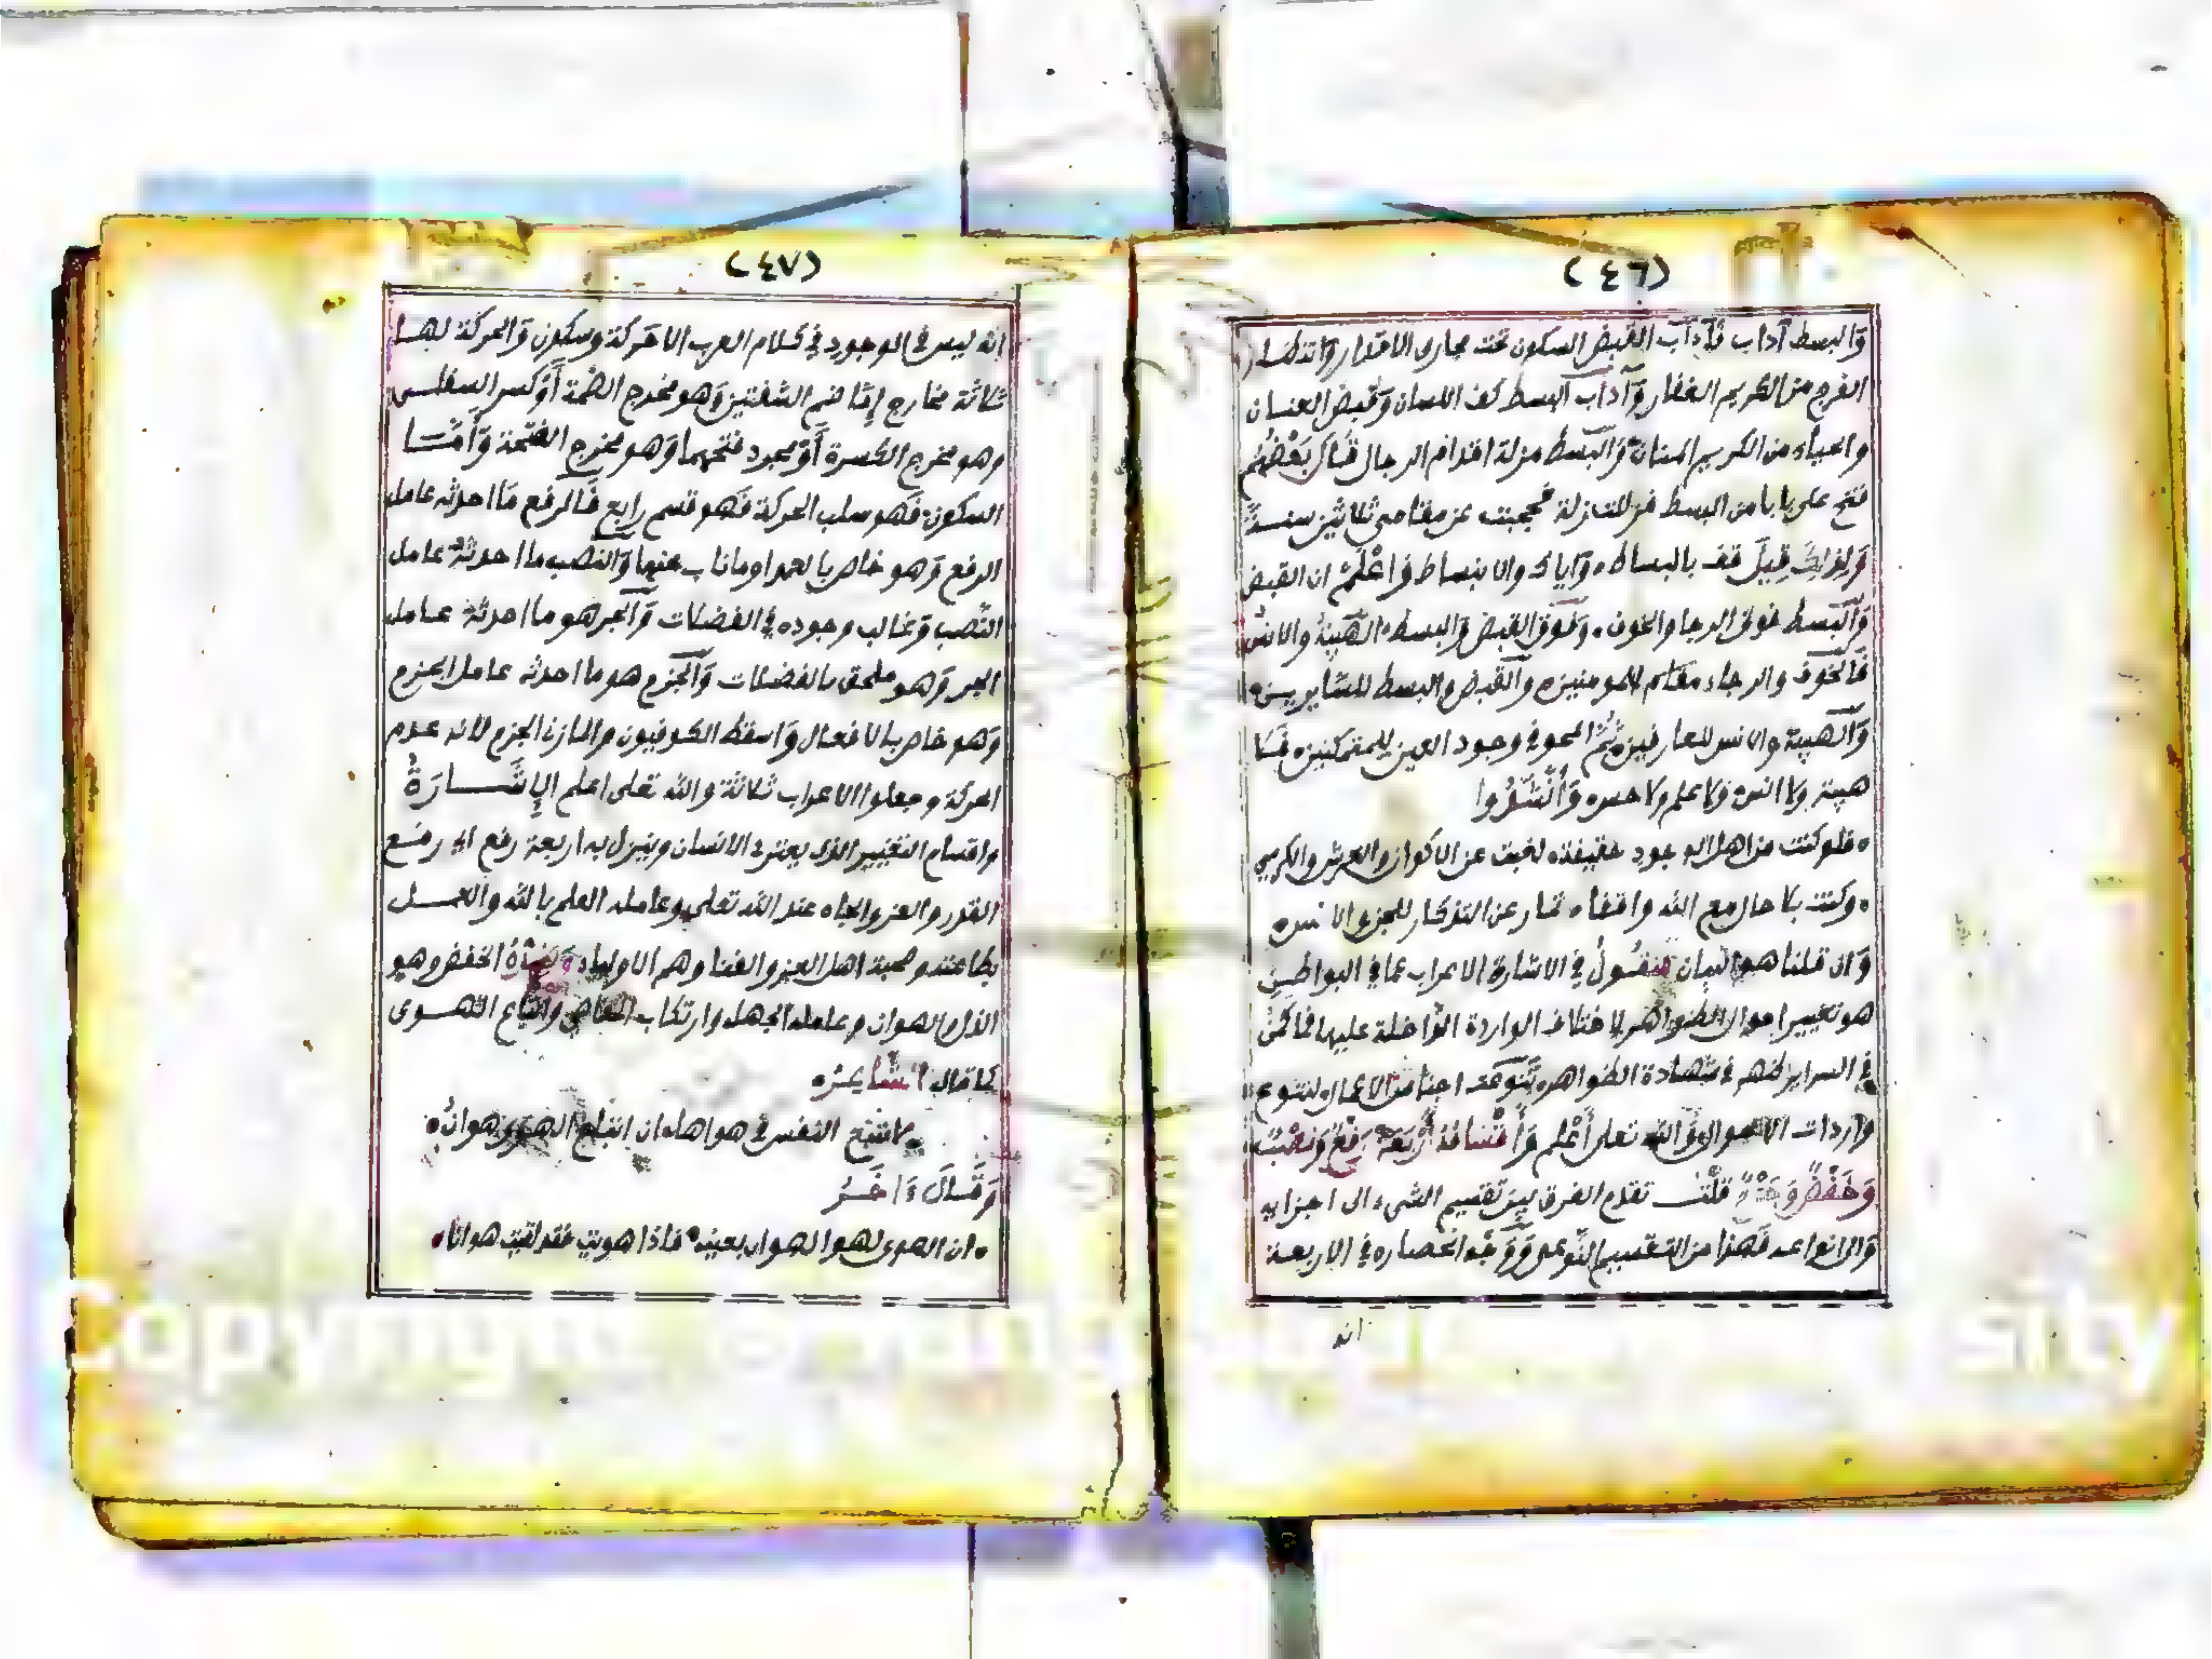 (٤٦)
وَالبسط آداب فَآداب القبض السكون تحت مجارى الاقدار وَانتظار
الفرج من الكريم الغفار وَآداب البسط كف اللسان وَقبض العنان
والحياء من الكريم المنان وَالبسط مزلة اقدام الرجال قَال بَعْضُهُم
فتح على بابا من البسط فزللت زلة فحجبت عن مقامى ثلاثين سنة
وَلِذَلِكَ قِيلَ قف بالبساط وَاياك والانبساط وَاعْلَمْ ان القبض
وَالبَسط فوق الرجا والخوف وَفوق القبض وَالبسط الهَيبة والانس
فَالخَوف والرجاء مقام للمومنين وَالقَبض والبسط للسايرين
وَالهيبة والانس للعارفين ثُمَّ المحو في وجود العين للمتمكنين فَلَا
هيبة ولا انس وَلا علم ولا حس وَأَنْشَدُوا
فلو كنت من اهل الوجود حقيقة لغبت عن الاكوان والعرش والكرسي
وكنت بلا حال مع الله واقفا تصان عن التذكار للجن والانس
وَان قلنا هو البيان فنقُولُ في الاشارة الاعراب عما في البواطن
هو تغيير احوال الظواهر لاختلاف الواردة الدَّاخلة عليها فما كمن
في السراير ظهر في شهادة الظواهر تَنَوعت اجناس الاعمال لتنوع
واردات الاحوال وَالله تعلى أَعْلم وَأَقْسَامُهُ أَرْبَعَةٌ رَفْعٌ وَنَصْبٌ
وَخَفْضٌ وَجَزْمٌ قلْت تقدم الفرق بين تقسيم الشيء الى اجزايه
وَالى انواعه فَهذا من التقسيم النَّوعى وَوَجْه انحصاره في الاربعة
انه
(٤٧)
انه ليس في الوجود في كلام العرب الا حَركة وسكون وَالحركة لها
ثلاثة مخارج إِمَّا ضم الشفتين وَهو مخرج الضمة أَوْ كسر السفلى
وهو مخرج الكسرة أَوْ مجرد فتحهما وَهو مخرج الفتحة وَأَمَّا
السكون فَهو سلب الحركة فَهو قسم رابع فَالرفع مَا احدثه عامل
الرفع وَهو خاص بالعمدا وما ناب عنها وَالنصب ما احدثهُ عامل
النَّصب وَغالب وجوده في الفضلات وَالجر هو ما احدثهُ عامل
الجر وَهو ملحق بالفضلات وَالجَزم هو ما احدثه عامل الجزم
وَهو خاص بالافعال وَاسقط الكوفيون والمازنى الجزم لأنه عدم
الحركة وجعلوا الاعراب ثلاثة والله تعلى اعلم الإِشَارَةُ
واقسام التغيير الذى يعترى الانسان وينزل به اربعة رفع اى رفع
القدر والعز والجاه عند الله تعلى وعامله العلم بالله والعمل
بطاعته وصحبة اهل العز والغنا وهم الاولياء وَضِدُّهُ الخفض وهو
الذل والهوان وعامله الجهل وارتكاب المعاصى واتباع الهوى
كما قال الشَّاعِرُ
لا تتبع النفس في هواها ان اتباع الهوى هوانُ
وَقَالَ ءَاخَرُ
ان الهوى لهوا الهوان بعينه فاذا هويت فقد لقيت هوانا